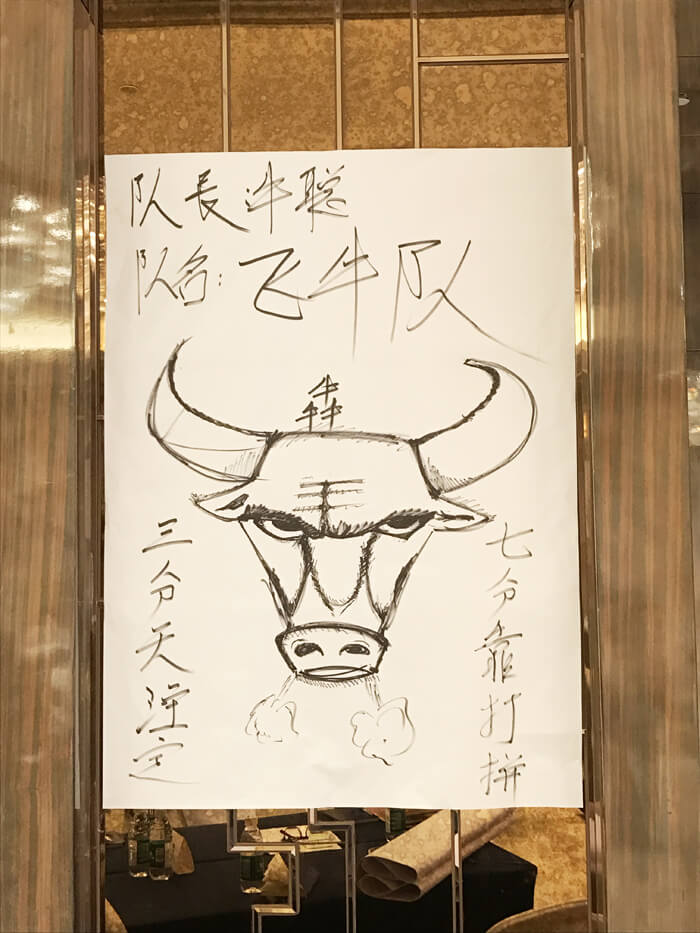 队長 许聪
队名:飞牛队
犇
三分天注定
七分靠打拼